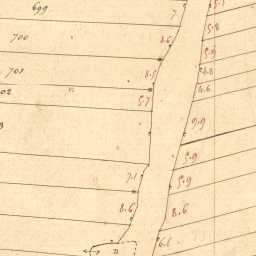 699
7
5.8
700
8.6
5.9
701
8.5
8.8
02
5.7
6.6
9.9
5.9
7.1
5.9
8.6
8.6
6.6